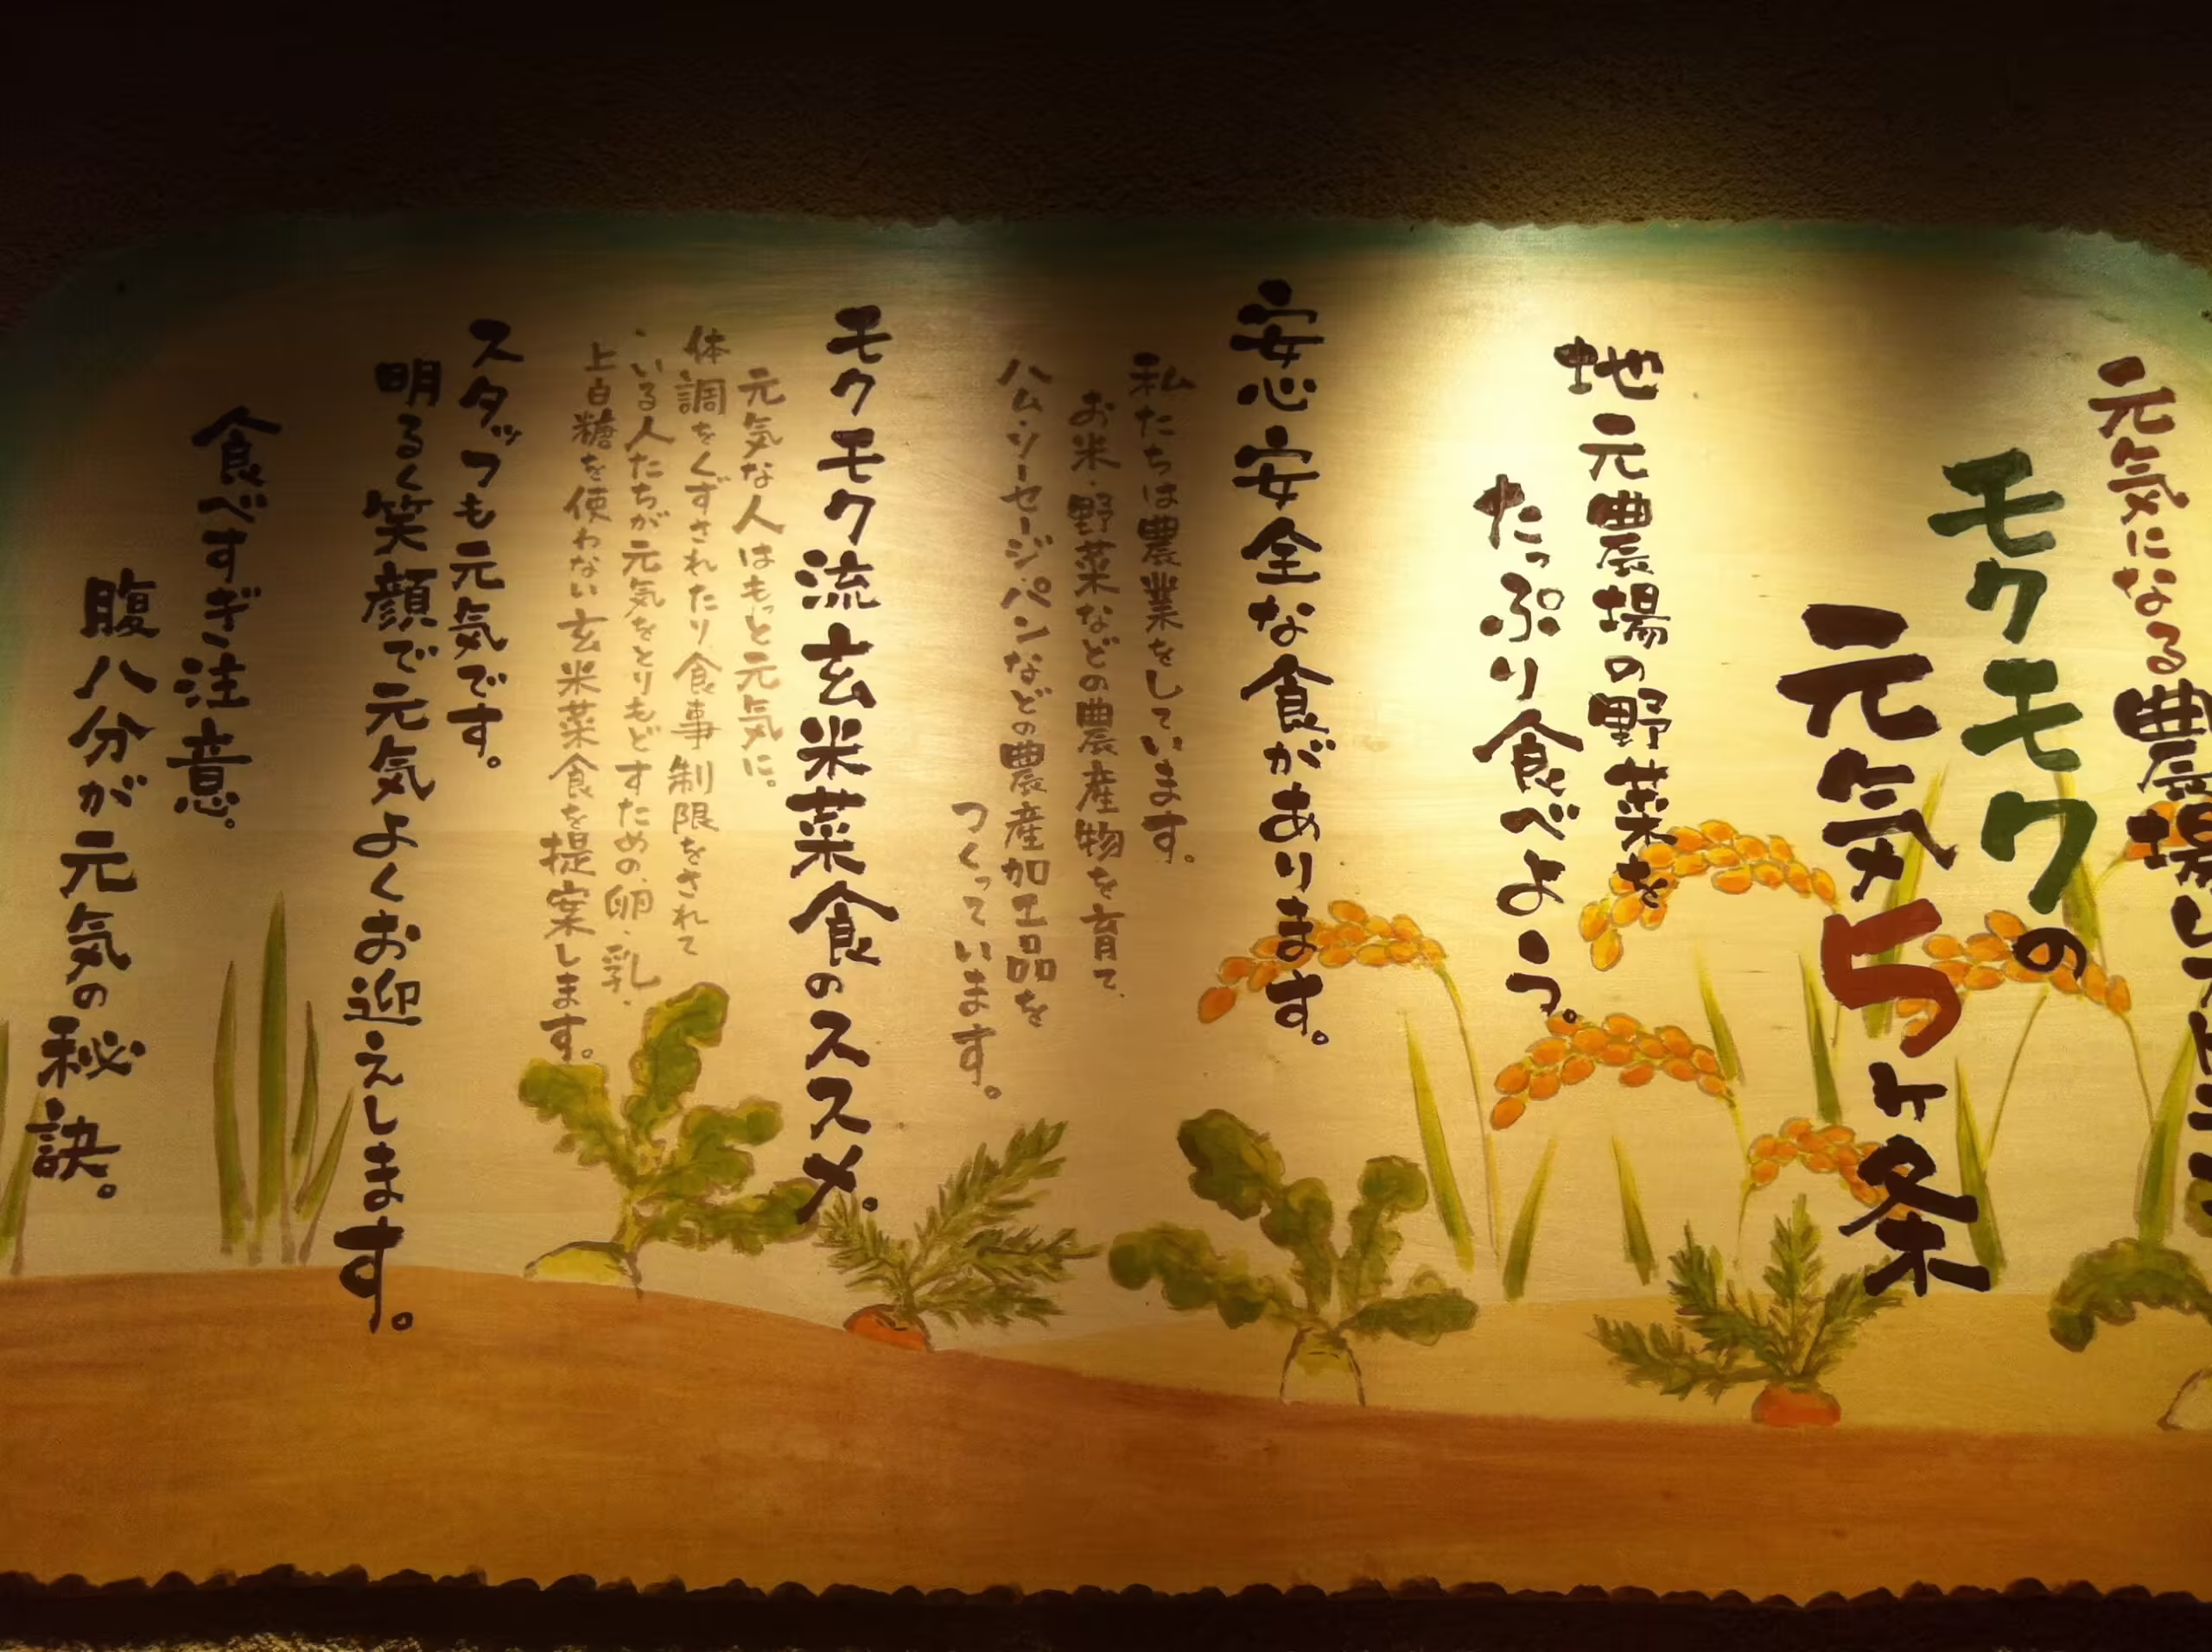 元気になる農場レストラン
モクモクの
元気5ヶ条
地元農場の野菜を
たっぷり食べよう。
安心安全な食があります。
私たちは農業をしています。
お米・野菜などの農産物を育て、
ハム・ソーセージ・パンなどの農産加工品を
つくっています。
モクモク流玄米菜食のススメ。
元気な人はもっと元気に。
体調をくずされたり食事制限をされて
いる人たちが元気をとりもどすための、卵・乳・
上白糖を使わない玄米菜食を提案します。
スタッフも元気です。
明るく笑顔で元気よくお迎えします。
食べすぎ注意。
腹八分が元気の秘訣。